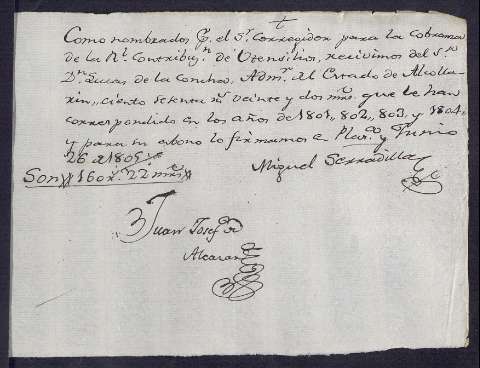 †
Como nombrados P. el Sr. Corregidor para la cobranza
de la Rl. Contribuyn. de Utensilios, recivimos del Sr.
Dn. Lucas de la Concha, Admr. del Estado de Alcolla-
rin, ciento sesenta rs. veinte y dos mrs. que le han
correspondido en los años de 1801, 802, 803, y 1804,
y para su abono lo firmamos en Plasa. y Junio
26 de 1805
Son 160 rs. 22 mrs.
Miguel Serradilla
Juan Josef de
Alcazar